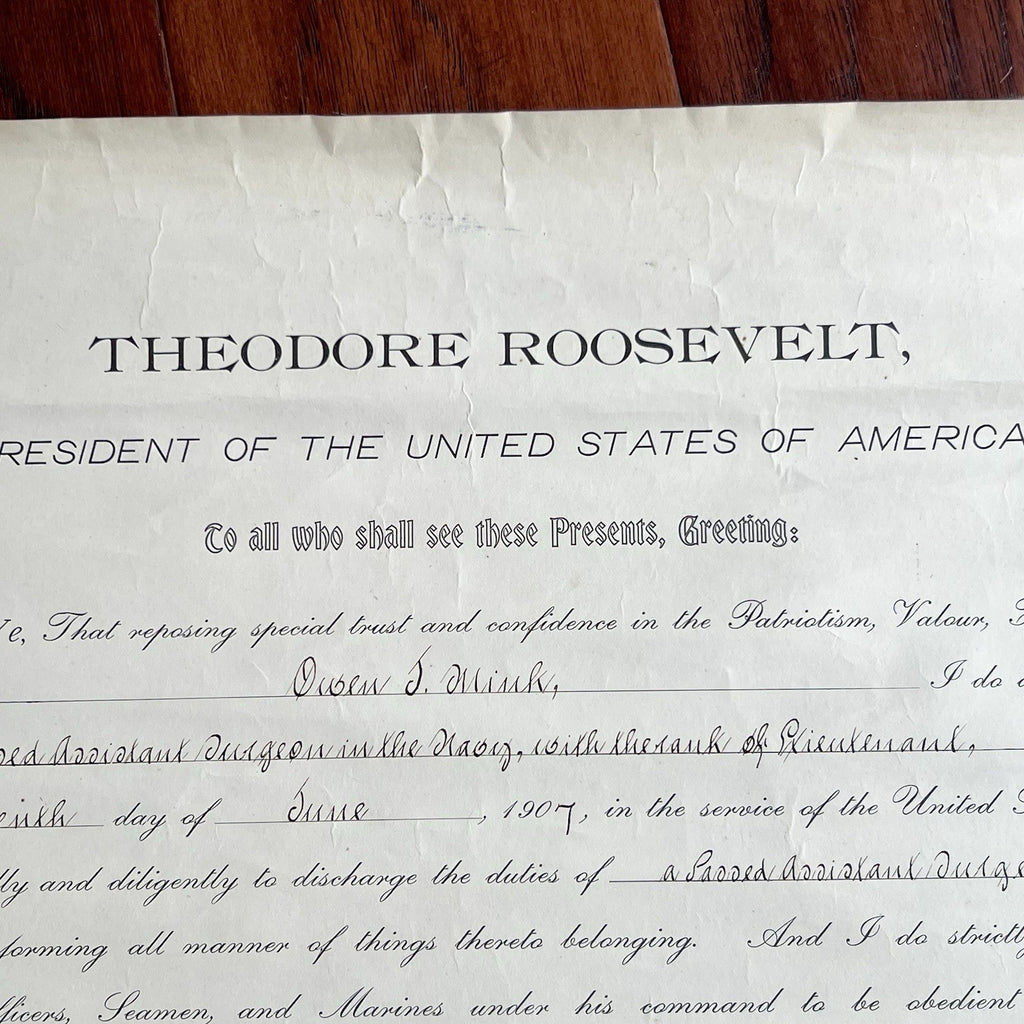 THEODORE ROOSEVELT,
RESIDENT OF THE UNITED STATES OF AMERICA
To all who shall see these Presents, Greeting:
Ye, That reposing special trust and confidence in the Patriotism, Valour,
Owen J. Mink, I do
sed Assistant Surgeon in the Navy, with the rank of Lieutenant,
day of June, 1907, in the service of the United
lly and diligently to discharge the duties of a Passed Assistant Surge
forming all manner of things thereto belonging. And I do strictly
fficers, Seamen, and Marines under his command to be obedient